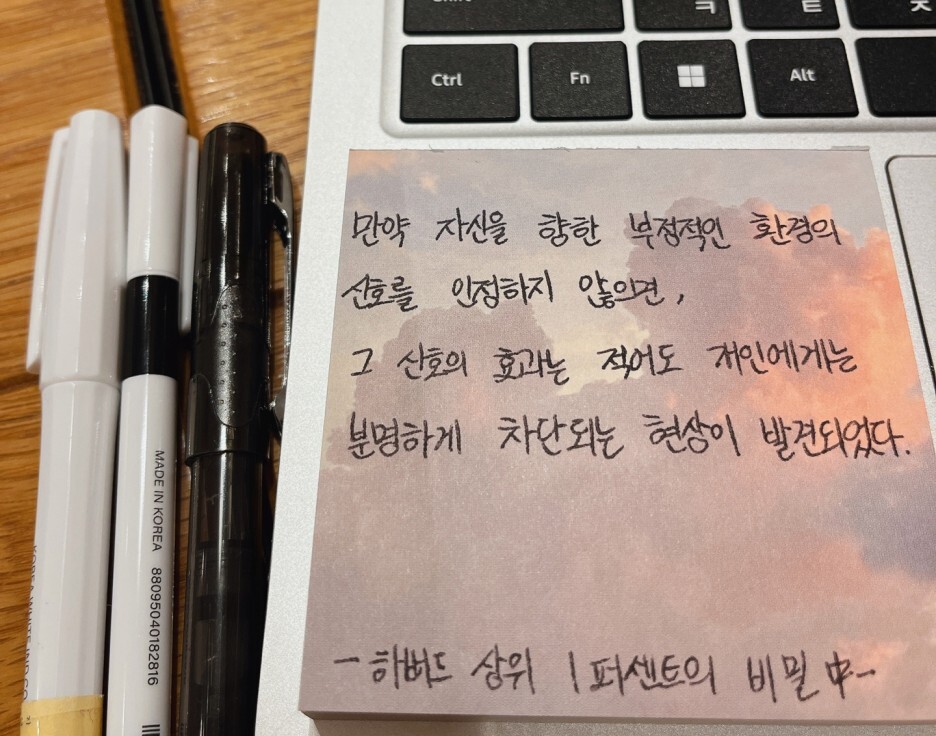 Shift ㅋ ㅌ ㅊ
Ctrl Fn Alt
만약 자신을 향한 부정적인 환경의
신호를 인정하지 않으면,
그 신호의 효과는 적어도 저인에게는
분명하게 차단되는 현상이 발견되었다.
- 하버드 상위 1 퍼센트의 비밀 中 -
MADE IN KOREA 8809504018281​6